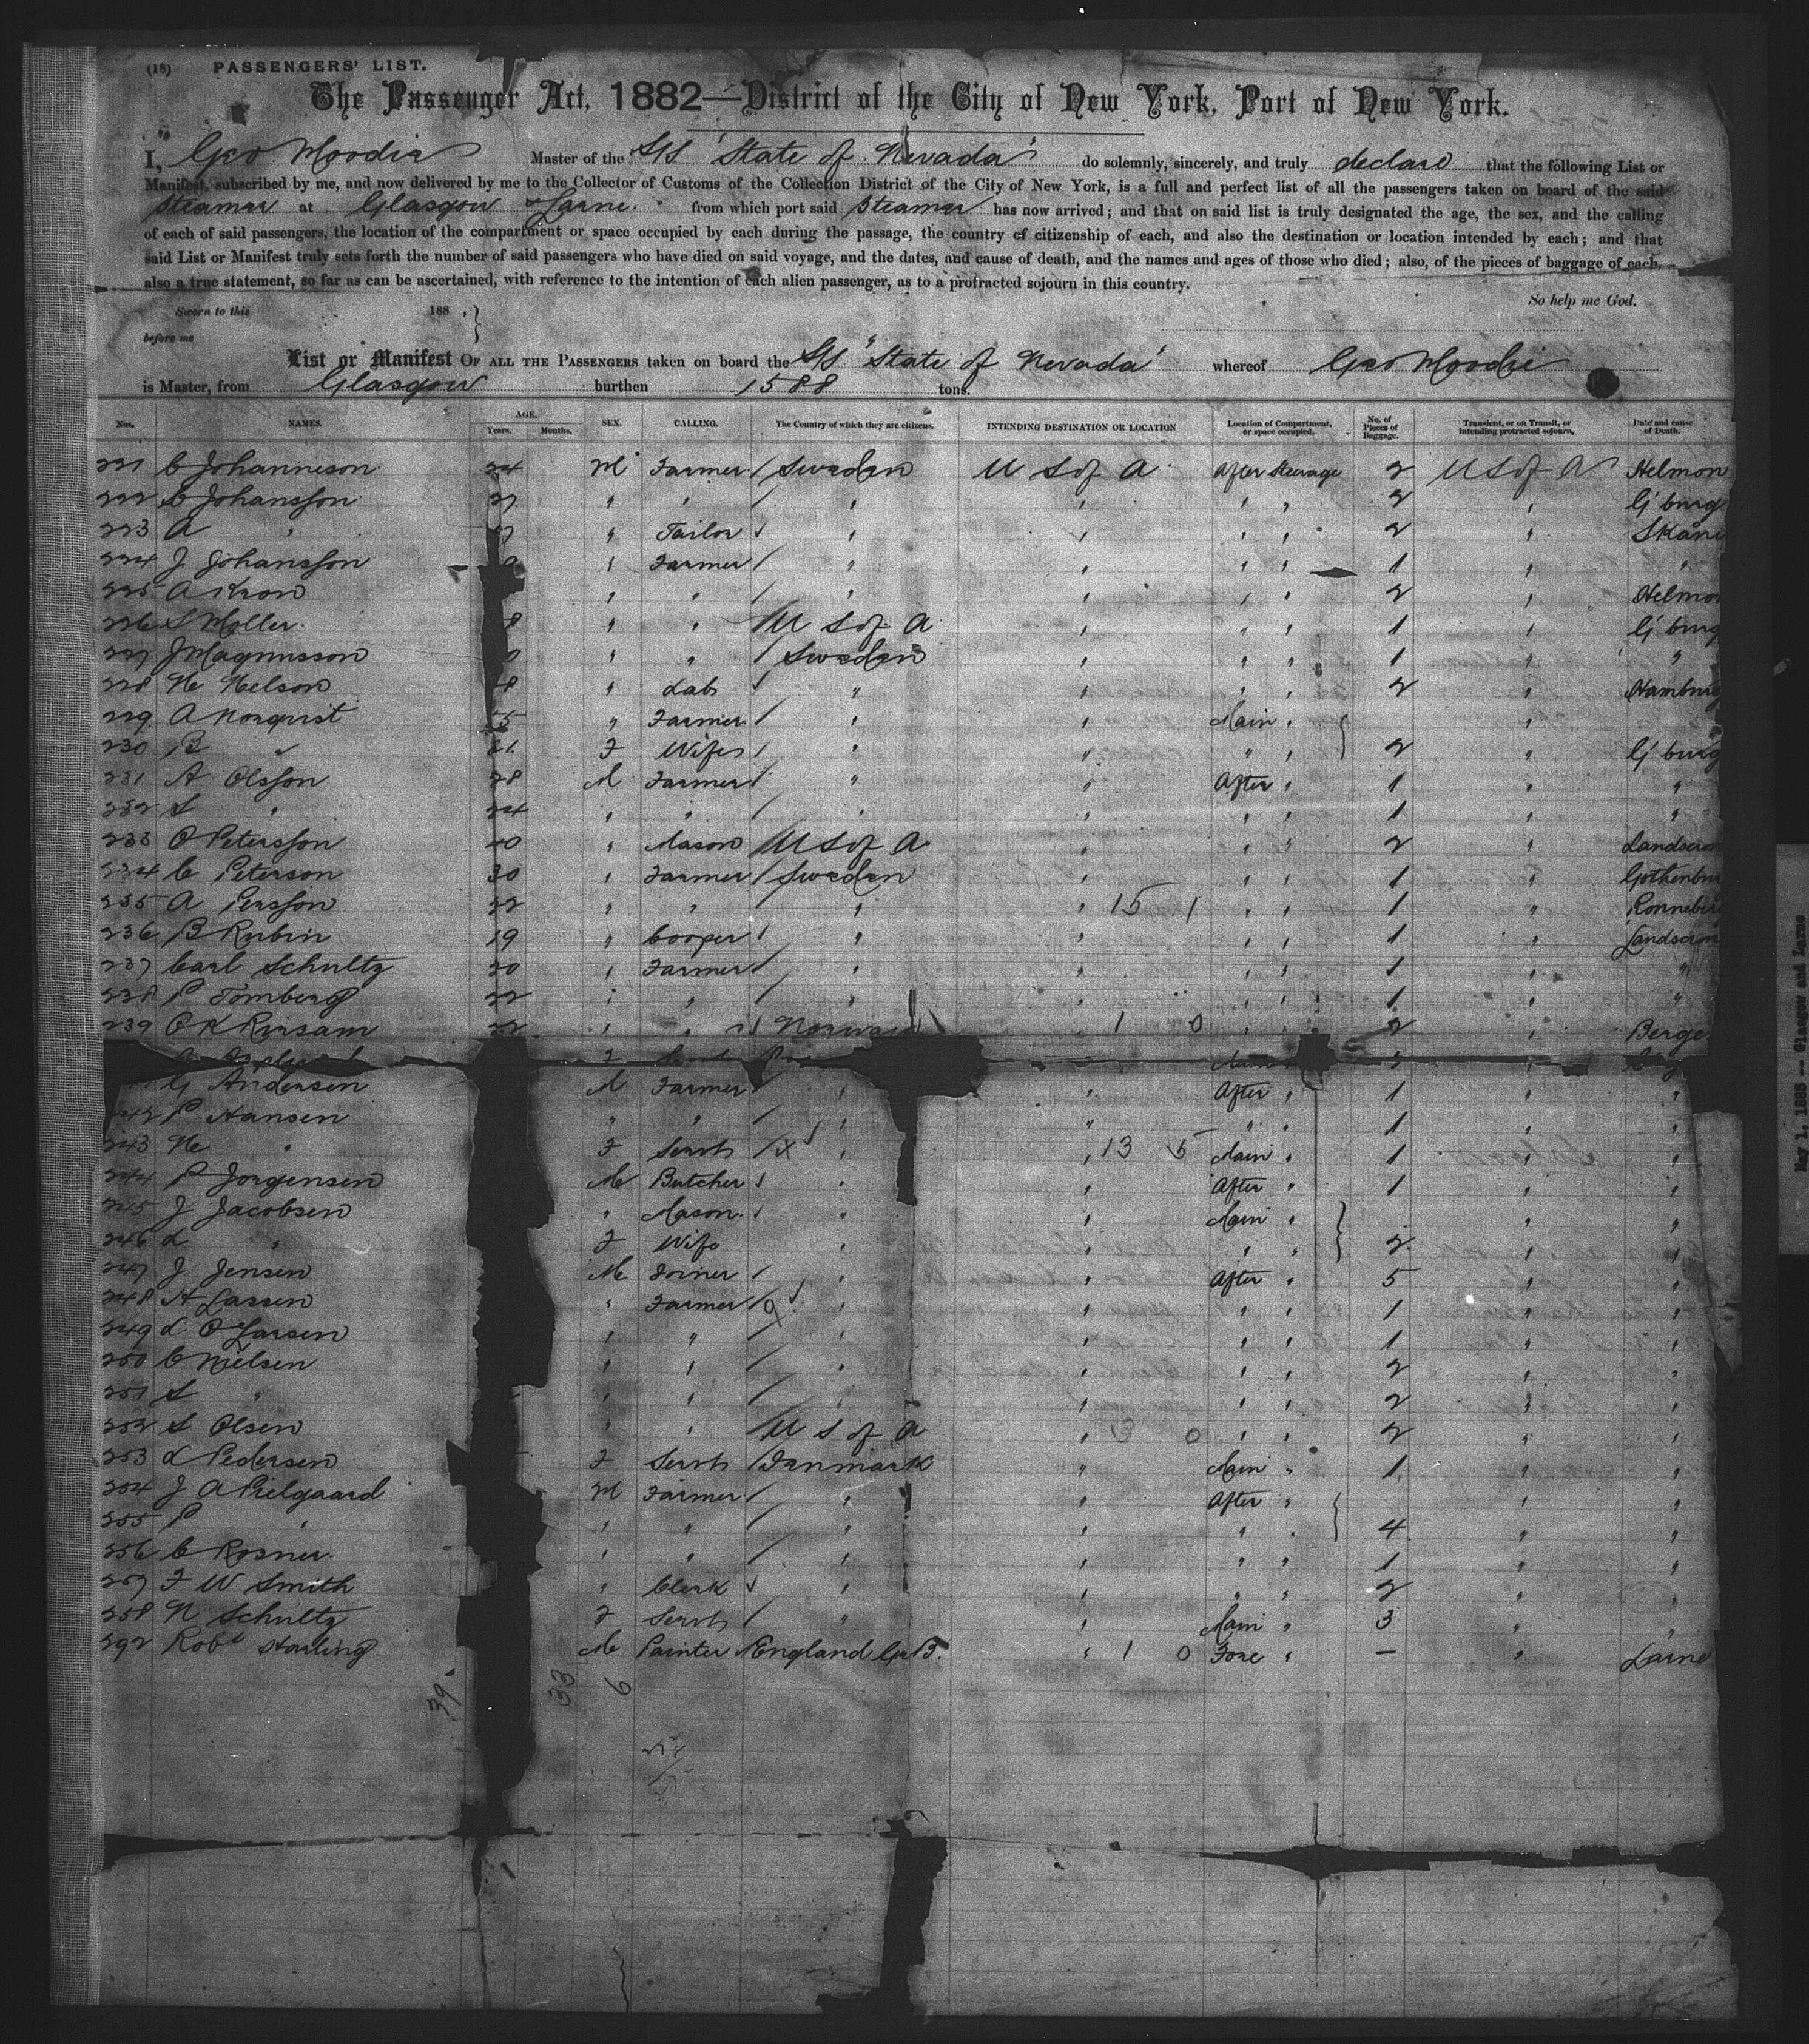 (16) PASSENGERS' LIST.
The Passenger Act, 1882—District of the City of New York, Port of New York.
I, Geo Moodie Master of the S/S "State of Nevada" do solemnly, sincerely, and truly declare that the following List or
Manifest, subscribed by me, and now delivered by me to the Collector of Customs of the Collection District of the City of New York, is a full and perfect list of all the passengers taken on board of the said
Steamer at Glasgow & Larne. from which port said Steamer has now arrived; and that on said list is truly designated the age, the sex, and the calling
of each of said passengers, the location of the compartment or space occupied by each during the passage, the country of citizenship of each, and also the destination or location intended by each; and that
said List or Manifest truly sets forth the number of said passengers who have died on said voyage, and the dates, and cause of death, and the names and ages of those who died; also, of the pieces of baggage of each,
also a true statement, so far as can be ascertained, with reference to the intention of each alien passenger, as to a protracted sojourn in this country.
So help me God.
Sworn to this 188 ,
before me
List or Manifest OF ALL THE PASSENGERS taken on board the S/S "State of Nevada" whereof Geo Moodie
is Master, from Glasgow burthen 1588 tons.
Nos. NAMES. AGE. Years. Months. SEX. CALLING. The Country of which they are citizens. INTENDING DESTINATION OR LOCATION Location of Compartment, or space occupied. No. of Pieces of Baggage. Transient, or on Transit, or intending protracted sojourn. Date and cause of Death.
221 C Johanneson 24 M Farmer / Sweden U S of A After Steerage 2 U S of A Helmon
222 C Johansson 27 " " / " " " " 2 " G'burg
223 A " 7 " Tailor / " " " " 2 " Skåne
224 J Johansson " Farmer / " " " " 1 " "
225 A Kron " " / " " " " 2 " Helmon
226 S Moller 8 " " / U S of A " " " 1 " G'burg
227 J Magnusson 0 " " / Sweden " " " 1 " "
228 N Nelson 8 " Lab / " " " " 2 " Hamburg
229 A Norqvist 55 " Farmer / " " Main " "
230 B " 51 F Wife / " " " " 2 " G'burg
231 A Olsson 28 M Farmer / " " After " 1 " "
232 S " 24 " " / " " " " 1 " "
233 O Petersson 40 " Mason / U S of A " " " 2 " Landscron
234 C Peterson 30 " Farmer / Sweden " " " 1 " Gothenbur
235 A Persson 22 " " / " " 15 1 " " 1 " Ronneby
236 B Rubin 19 " Cooper / " " " " 1 " Landscron
237 Carl Schultz 20 " Farmer / " " " " 1 " "
238 P Tomberg 22 " " / " " " " 1 " "
239 O K Rinsam 22 " " / Norway " 1 0 " " 2 " Berge
F Main
G Andersen M Farmer / " " After " 1 " "
242 P Hansen " " / " " " " 1 " "
243 N " F Servt / x " " 13 5 Main " 1 " "
244 P Jorgensen M Butcher / " " After " 1 " "
245 J Jacobsen " Mason / " " Main " " "
246 L " F Wife " " " " 2 " "
247 J Jensen M Joiner / " " After " 5 " "
248 H Lassen " Farmer / 9 " " " " 1 " "
249 L O Larsen " " / " " " " 1 " "
250 C Nielsen " " / " " " " 2 " "
251 S " " " / " " " " 2 " "
252 S Olsen " " / U S of A " 3 0 " " 2 " "
253 L Pedersen F Servt / Danmark " Main " 1 " "
254 J A Pielgaard M Farmer / " " After " " "
255 P " " " / " " " " 4 " "
256 C Rosner " " / " " " " 1 " "
257 F W Smith " Clerk / " " " " 2 " "
258 N Schultz F Servt / " " Main " 3 " "
292 Robt Starling M Painter / England Gr B. " 1 0 Fore " — " Larne
39 33 6
May 1, 1885 — Glasgow and Larne